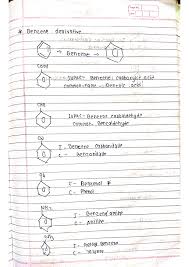 # Benzene derivative
→ Benzene →
COOH
IUPAC - Benzene carboxylic acid
common name - Benzoic acid
CHO
IUPAC - Benzene carbaldehyde
common - Benzaldehyde
CN
I - Benzene carbonitrile
C - benzonitrile
OH
I - Benzenol
C - Phenol
NH₂
I - Benzenamine
C - Aniline
CH₃
I - methyl Benzene
C - Toluene